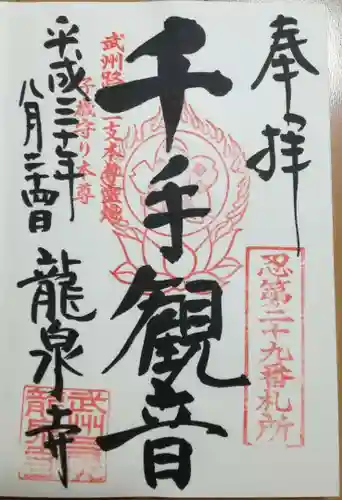 奉拝
忍第二十九番札所
千手観音
武州路十二支本尊霊場
子歳守り本尊
平成三十年
八月二十四日
龍泉寺